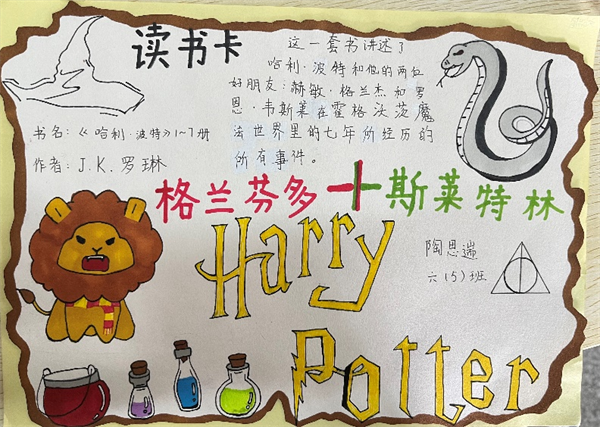 读书卡
这一套书讲述了
哈利·波特和他的两位
好朋友:赫敏·格兰杰和罗
恩·韦斯莱在霍格沃茨魔
法世界里的七年所经历的
所有事件。
书名:《哈利·波特》1~7册
作者:J.K.罗琳
格兰芬多十斯莱特林
Harry
陶思遄
六(5)班
Potter